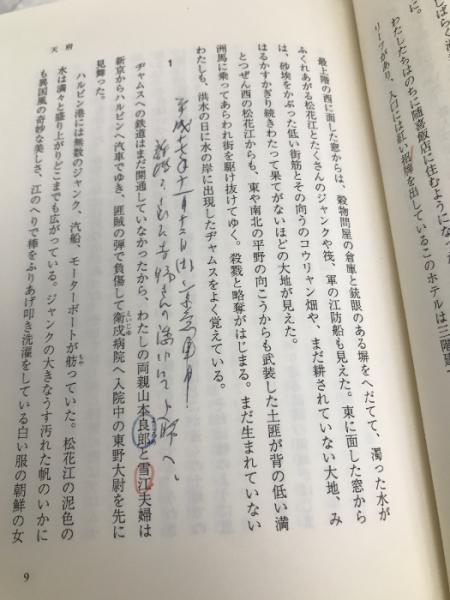 しばらく
わたしたちはのちに随喜飯店に住むようになっ
リーフがあり、入口には紅い招牌を出しているこのホテルは三階建
最上階の西に面した窓からは、穀物問屋の倉庫と銃眼のある塀をへだてて、濁った水が
ふくれあがる松花江とたくさんのジャンクや筏、軍の江防船も見えた。東に面した窓から
は、砂埃をかぶった低い街筋とその向うのコウリャン畑や、まだ耕されていない大地、み
はるかすかぎり続きわたって果てがないほどの大地が見えた。
とつぜん西の松花江からも、東や南北の平野の向こうからも武装した土匪が背の低い満
洲馬に乗ってあらわれ街を駆け抜けてゆく。殺戮と略奪がはじまる。まだ生まれていない
わたしも、洪水の日に水の岸に出現したヂャムスをよく覚えている。
1
平成十七年十一月十三日
ヂャムスへの鉄道はまだ開通していなかったから、わたしの両親山本良郎と雪江夫婦は
新京からハルビンへ汽車でゆき、匪賊の弾で負傷して衛戍病院へ入院中の東野大尉を先に
えいじゅ
見舞った。
ハルビン港には無数のジャンク、汽船、モーターボートが舫っていた。松花江の泥色の
もや
水は満々と盛り上がりどこまでも広がっている。ジャンクの大きなうす汚れた帆のいかに
も異国風の奇妙な美しさ、江のへりで棒をふりあげ叩き洗濯をしている白い服の朝鮮の女
天府
9